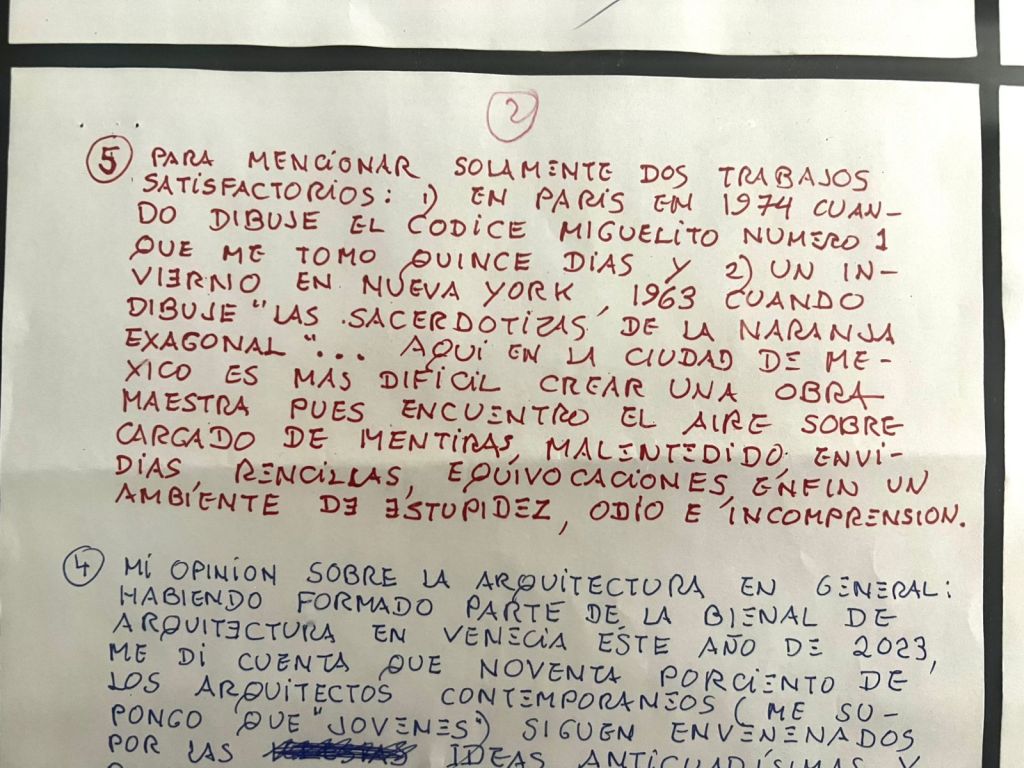 2
5 PARA MENCIONAR SOLAMENTE DOS TRABAJOS
SATISFACTORIOS: 1) EN PARIS EN 1974 CUAN-
DO DIBUJE EL CODICE MIGUELITO NUMERO 1
QUE ME TOMO QUINCE DIAS Y 2) UN IN-
VIERNO EN NUEVA YORK, 1963 CUANDO
DIBUJE "LAS SACERDOTIZAS DE LA NARANJA
EXAGONAL"... AQUI EN LA CIUDAD DE ME-
XICO ES MAS DIFICIL CREAR UNA OBRA
MAESTRA PUES ENCUENTRO EL AIRE SOBRE
CARGADO DE MENTIRAS, MALENTEDIDO, ENVI-
DIAS, RENCILLAS, EQUIVOCACIONES, ENFIN UN
AMBIENTE DE ESTUPIDEZ, ODIO E INCOMPRENSION.
4 MI OPINION SOBRE LA ARQUITECTURA EN GENERAL:
HABIENDO FORMADO PARTE DE LA BIENAL DE
ARQUITECTURA EN VENECIA ESTE AÑO DE 2023,
ME DI CUENTA QUE NOVENTA PORCIENTO DE
LOS ARQUITECTOS CONTEMPORANEOS (ME SU-
PONGO QUE "JOVENES") SIGUEN ENVENENADOS
POR LAS IDEAS ANTICUADÍSIMAS Y